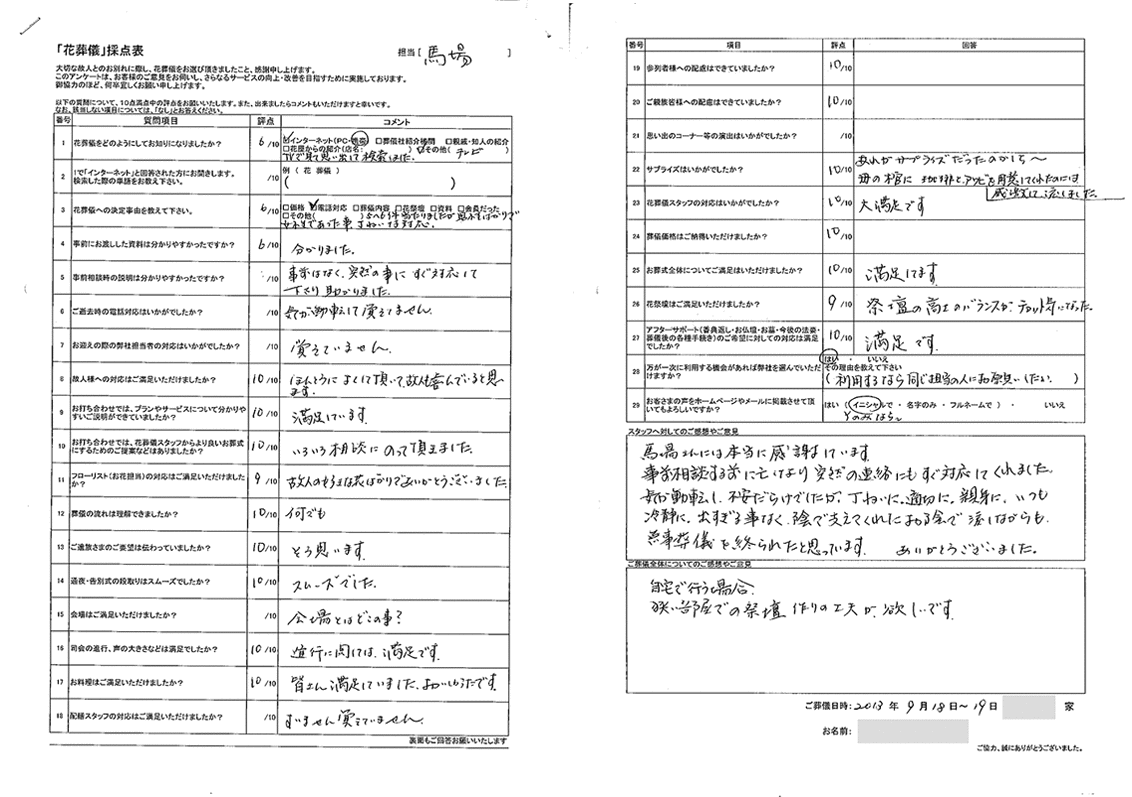 「花葬儀」採点表
担当[ 馬場 ]
大切な故人とのお別れに際し、花葬儀をお選び頂きましたこと、感謝申し上げます。
このアンケートは、お客様のご意見をお伺いし、さらなるサービスの向上・改善を目指すために実施しております。
御協力のほど、何卒宜しくお願い申し上げます。
以下の質問について、10点満点中の評点をお願いいたします。また、出来ましたらコメントもいただけますと幸いです。
なお、該当しない項目については、「なし」とお答えください。
番号 質問項目 評点 コメント
1 花葬儀をどのようにしてお知りになりましたか? 6/10 ☑インターネット(PC・携帯) □葬儀社紹介機関 □親戚・知人の紹介
□花屋からの紹介(店名: ) ☑その他( テレビ )
TVで見て思い出して検索しました.
2 1で「インターネット」と回答された方にお聞きします。 /10 例 ( 花 葬儀 )
検索した際の単語をお教え下さい。 ( )
3 花葬儀への決定事由を教えて下さい。 6/10 □価格 ☑電話対応 □葬儀内容 □花祭壇 □資料 □会員だった
□その他(
女性であった事、丁ねいな対応.
4 事前にお渡しした資料は分かりやすかったですか? 6/10 分かりました.
5 事前相談時の説明は分かりやすかったですか? /10 事前はなく、突然の事に すぐ対応して
下さり 助かりました.
6 ご逝去時の電話対応はいかがでしたか? /10 気が動転して覚えてません.
7 お迎えの際の弊社担当者の対応はいかがでしたか? /10 覚えていません.
8 故人様への対応はご満足いただけましたか? 10/10 ほんとうに よくして頂いて故人も喜んでいると思
います.
9 お打ち合わせでは、プランやサービスについて分かりや 10/10 満足しています.
すいご説明ができていましたか?
10 お打ち合わせでは、花葬儀スタッフからより良いお葬式 10/10 いろいろ相談にのって頂きました.
にするためのご提案などはありましたか?
11 フローリスト(お花担当)の対応はご満足いただけました 9/10 故人の好きな花ばかりでありがとうございました.
か?
12 葬儀の流れは理解できましたか? 10/10 何でも
13 ご遺族さまのご要望は伝わっていましたか? 10/10 そう思います.
14 通夜・告別式の段取りはスムーズでしたか? 10/10 スムーズでした.
15 会場はご満足いただけましたか? /10 会場とはどこの事?
16 司会の進行、声の大きさなどは満足でしたか? 10/10 進行に関しては、満足です.
17 お料理はご満足いただけましたか? 10/10 皆さん満足していました、よかったです.
18 配膳スタッフの対応はご満足いただけましたか? /10 すいません覚えていません.
裏面もご回答お願いいたします
番号 項目 評点 回答
19 参列者様への配慮はできていましたか? 10/10
20 ご親族皆様への配慮はできていましたか? 10/10
21 思い出のコーナー等の演出はいかがでしたか? /10
22 サプライズはいかがでしたか? 10/10 あれがサプライズだったのかしら〜
母の棺に 珈琲とアンパンを用意してくれたのには
感激して涙しました.
23 花葬儀スタッフの対応はいかがでしたか? 10/10 大満足です
24 葬儀価格はご納得いただけましたか? 10/10
25 お葬式全体についてご満足はいただけましたか? 10/10 満足してます.
26 花祭壇はご満足いただけましたか? 9/10 祭壇の高さのバランスが、チョット気になった.
27 アフターサポート(香典返し・お仏壇・お墓・今後の法要・ 10/10 満足 です.
葬儀後の各種手続き)のご希望に対しての対応は満足
でしたか?
28 万が一次に利用する機会があれば弊社を選んでいただ はい ・ いいえ
けますか? その理由を教えて下さい
( 利用するなら同じ担当の人にお願いしたい. )
29 お客さまの声をホームページやメールに掲載させて頂 はい (イニシャルで ・ 名字のみ ・ フルネームで ) ・ いいえ
いてもよろしいですか? Yのみなら〜
スタッフへ対してのご感想やご意見
馬場さんには本当に感謝しています.
事前相談する前に亡くなり 突然の連絡にもすぐ対応してくれました.
気が動転し、不安だらけでしたが、丁ねいに、適切に、親身に、いつも
冷静に、出すぎる事なく、陰で支えてくれたお陰で 涙しながらも、
無事葬儀を終られたと思っています. ありがとうございました.
ご葬儀全体についてのご感想やご意見
自宅で行う場合.
狭い部屋での祭壇 作りの工夫が、欲しいです.
ご葬儀日時: 2013 年 9 月 18 日〜 19 日 家
お名前:
ご協力、誠にありがとうございました。